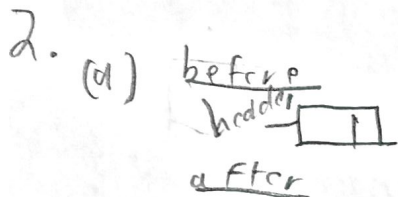 2.
(a) before
header
after